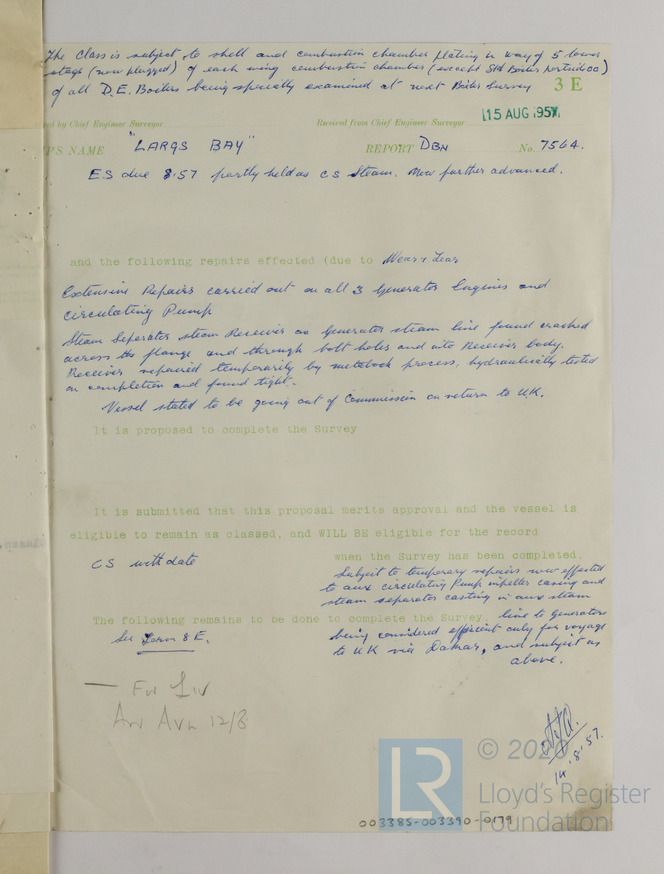 The Class is subject to shell and combustion chamber plating in way of 5 lower
stays (now plugged) of each wing combustion chamber (except Stbd Boiler
of all D.E. Boilers being specially examined at next Boiler Survey
3 E
ed by Chief Engineer Surveyor
Received from Chief Engineer Surveyor
15 AUG 1957
P'S NAME "LARGS BAY" REPORT DBN No. 7564.
ES due 8.57 partly held as CS Steam. Now further advanced.
and the following repairs effected (due to Wear & Tear
Extensive Repairs carried out on all 3 Generator Engines and
circulating Pump
Steam Seperator steam Receiver on Generator steam line found cracked
across the flange and through bolt holes and into Receiver body.
Receiver repaired temporarily by metalock process, hydraulically tested
on completion and found tight.
Vessel stated to be going out of Commission on return to U.K.
It is proposed to complete the Survey
It is submitted that this proposal merits approval and the vessel is
eligible to remain as classed, and WILL BE eligible for the record
CS with date
when the Survey has been completed.
Subject to temporary repairs now effected
to aux circulating Pump impeller casing and
steam separator casting in aux steam
line to Generators
being considered efficient only for voyage
to UK via Dakar, and subject as
above.
The following remains to be done to complete the Survey.
See Form 8 E.
14.8.57.
© 202
LR
Lloyd's Register
Foundation
003385-003390-0179